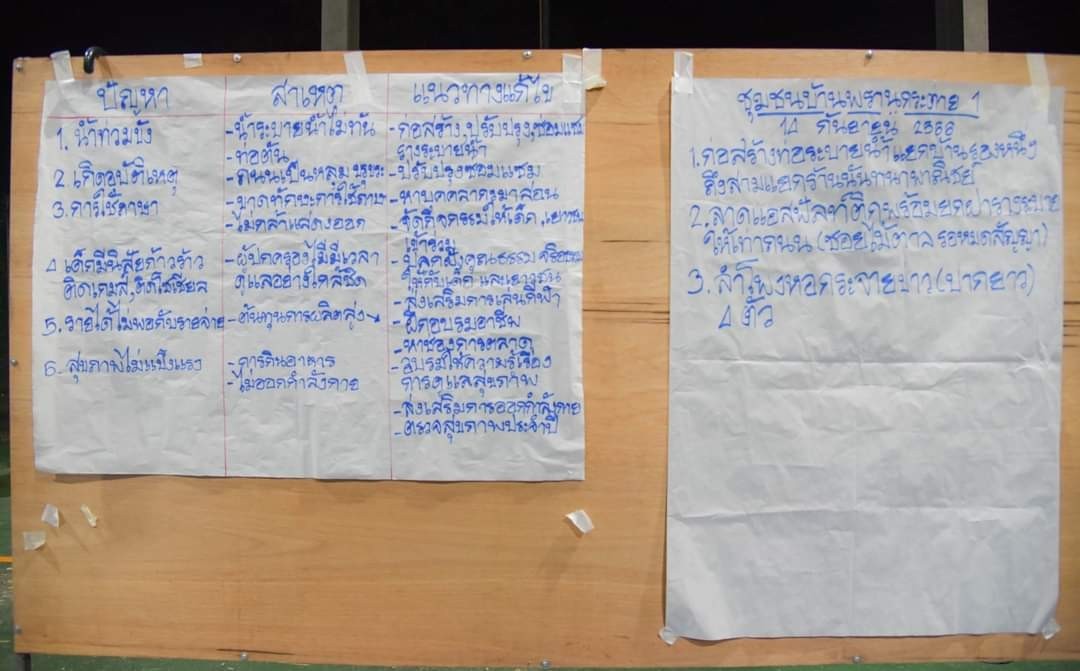 ปัญหา
1. น้ำท่วมขัง
2. เกิดอุบัติเหตุ
3. การใช้ภาษา
4 เด็กมีนิสัยก้าวร้าว
ติดเกมส์, ติดโซเชียล
5. รายได้ไม่พอกับรายจ่าย
6. สุขภาพไม่แข็งแรง
สาเหตุ
- น้ำระบายน้ำไม่ทัน
- ท่อตัน
- ถนนเป็นหลุม ขรุขระ
- ขาดทักษะการใช้ภาษา
- ไม่กล้าแสดงออก
- ผู้ปกครองไม่มีเวลา
ดูแลอย่างใกล้ชิด
- ต้นทุนการผลิตสูง
- การกินอาหาร
- ไม่ออกกำลังกาย
แนวทางแก้ไข
- ก่อสร้าง, ปรับปรุง, ซ่อมแซม
รางระบายน้ำ
- ปรับปรุงซ่อมแซม
- หาบุคคลากรมาสอน
- จัดกิจกรรมให้เด็ก, เยาวชน
เข้าร่วม
- ปลูกฝังคุณธรรม จริยธรรม
ให้กับเด็ก และเยาวชน
- ส่งเสริมการเล่นกีฬา
- ฝึกอบรมอาชีพ
- หาช่องการตลาด
- อบรมให้ความรู้เรื่อง
การดูแลสุขภาพ
- ส่งเสริมการออกกำลังกาย
- ตรวจสุขภาพประจำปี
ชุมชนบ้านพรานกระต่าย 1
14 กันยายน 2566
1. ก่อสร้างท่อระบายน้ำ แยกบ้านรองหนึ่ง
ถึงสามแยกร้านนันทนาพาณิชย์
2. ลาดแอสฟัลท์ติกพร้อมยกฝารางระบาย
ให้เท่าถนน (ซอยไม้ตาล รอหมดสัญญา)
3. ลำโพงหอกระจายข่าว (ปากยาว)
4 ตัว